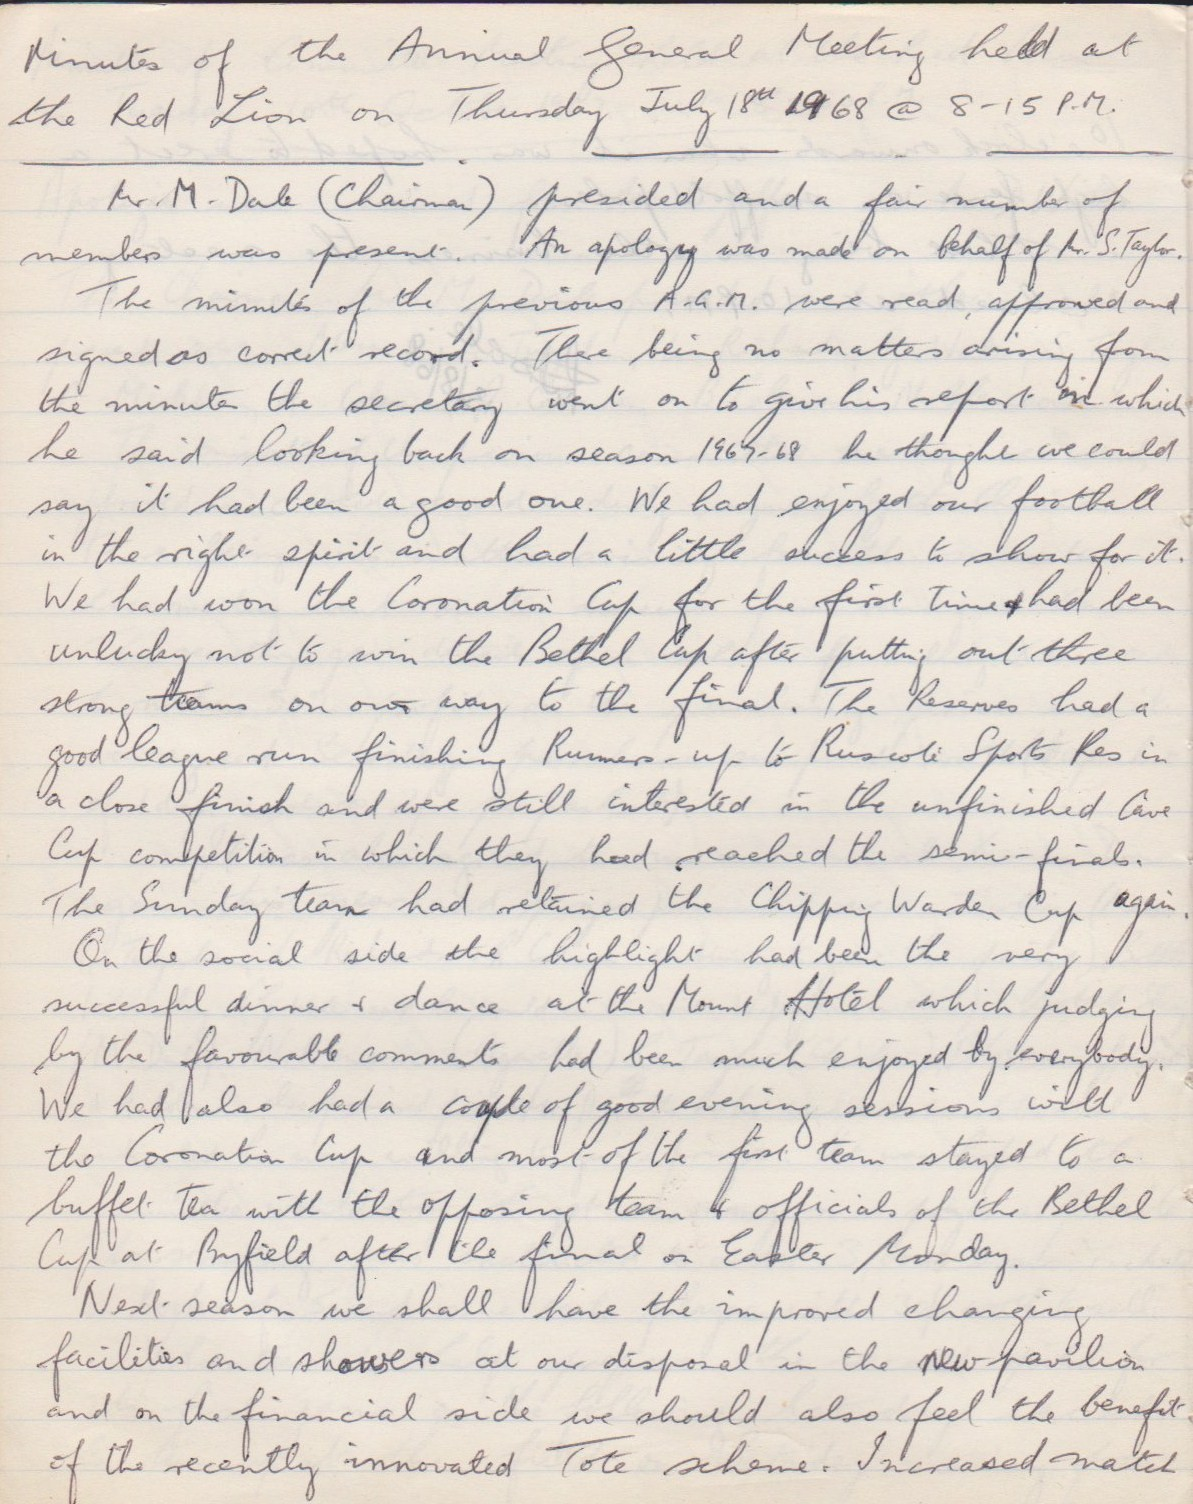 Minutes of the Annual General Meeting held at
the Red Lion on Thursday July 18th 1968 @ 8-15 P.M.
Mr. M. Dale (Chairman) presided and a fair number of
members was present. An apology was made on behalf of Mr. S. Taylor.
The minutes of the previous A.G.M. were read, approved and
signed as correct record. There being no matters arising from
the minutes the secretary went on to give his report in which
he said looking back on season 1967-68 he thought we could
say it had been a good one. We had enjoyed our football
in the right spirit and had a little success to show for it.
We had won the Coronation Cup for the first time & had been
unlucky not to win the Bethel Cup after putting out three
strong teams on our way to the final. The Reserves had a
good league run finishing Runners-up to Ruscote Sports Res in
a close finish and were still interested in the unfinished Cave
Cup competition in which they had reached the semi-finals.
The Sunday team had retained the Chipping Warden Cup again.
On the social side the highlight had been the very
successful dinner & dance at the Mount Hotel which judging
by the favourable comments had been much enjoyed by everybody.
We had also had a couple of good evening sessions with
the Coronation Cup and most of the first team stayed to a
buffet tea with the opposing team & officials of the Bethel
Cup at Byfield after the final on Easter Monday.
Next season we shall have the improved changing
facilities and showers at our disposal in the new pavilion
and on the financial side we should also feel the benefit
of the recently innovated Tote scheme. Increased match